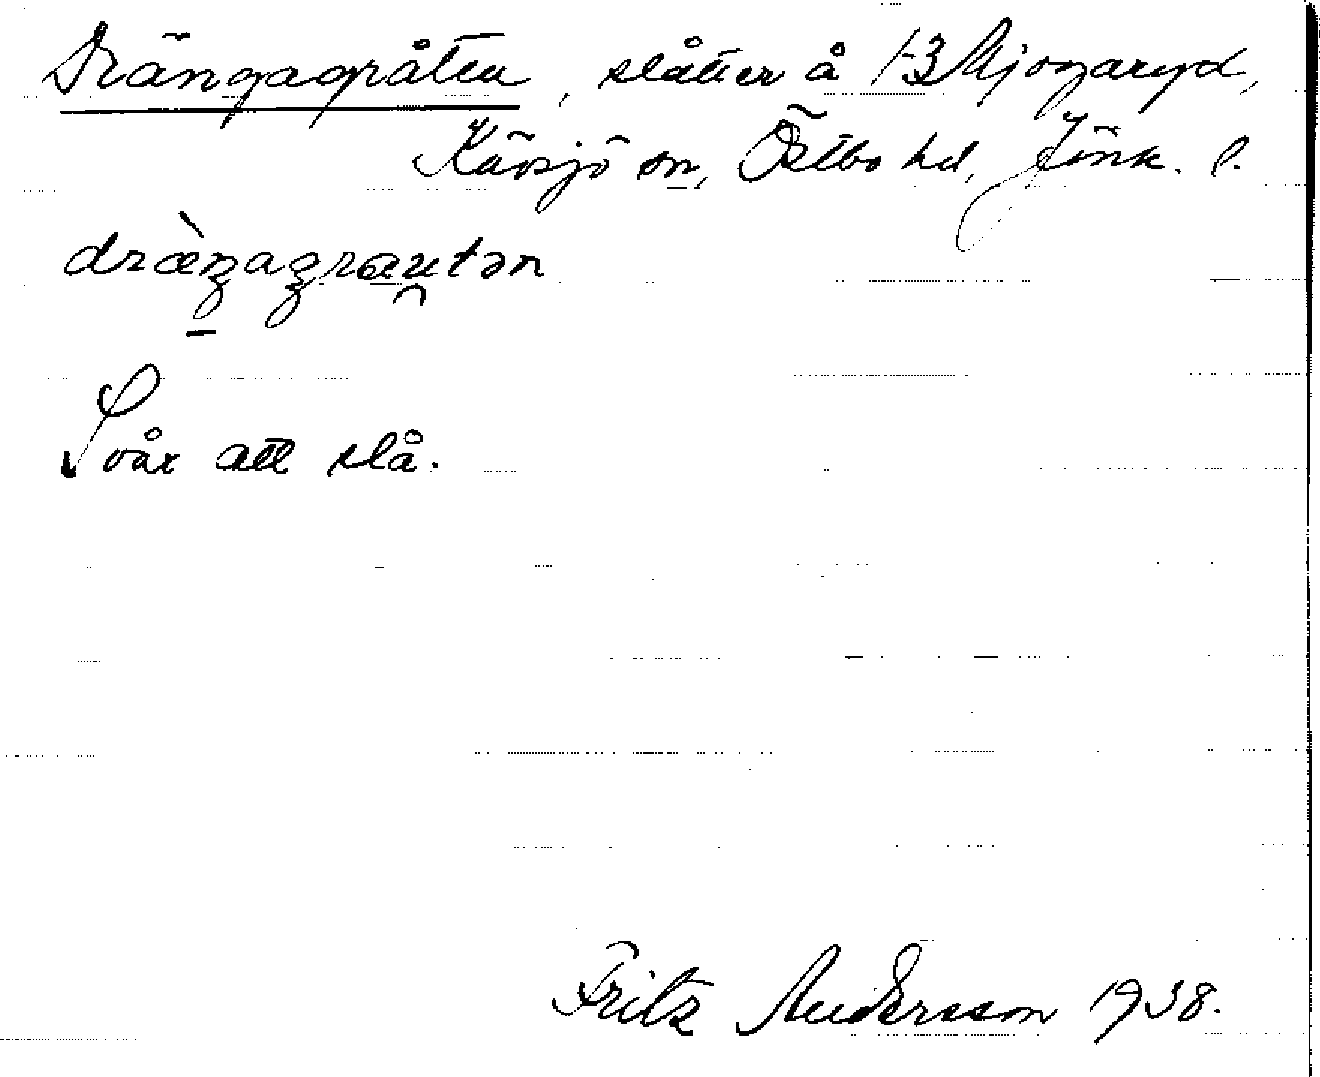 Drängagråten, slåtter å 1-3 Mjogaryd,
Kävsjö sn, Östbo hd, Jönk. l.
dræ̀ŋagrau̯tən
Svår att slå.
Fritz Andersson 1938.